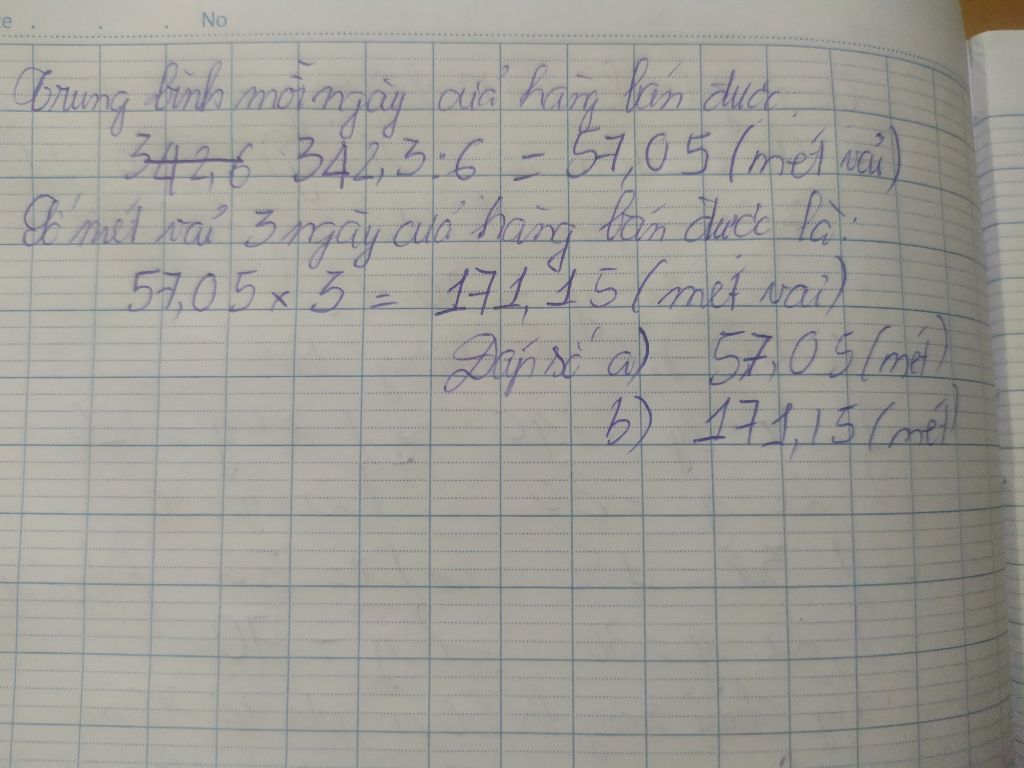 No
Trung bình mỗi ngày cửa hàng bán được
342,6 342,3 : 6 = 57,05 (mét vải)
Số mét vải 3 ngày cửa hàng bán được là:
57,05 x 3 = 171,15 (mét vải)
Đáp số a) 57,05 (mét)
b) 171,15 (mét)